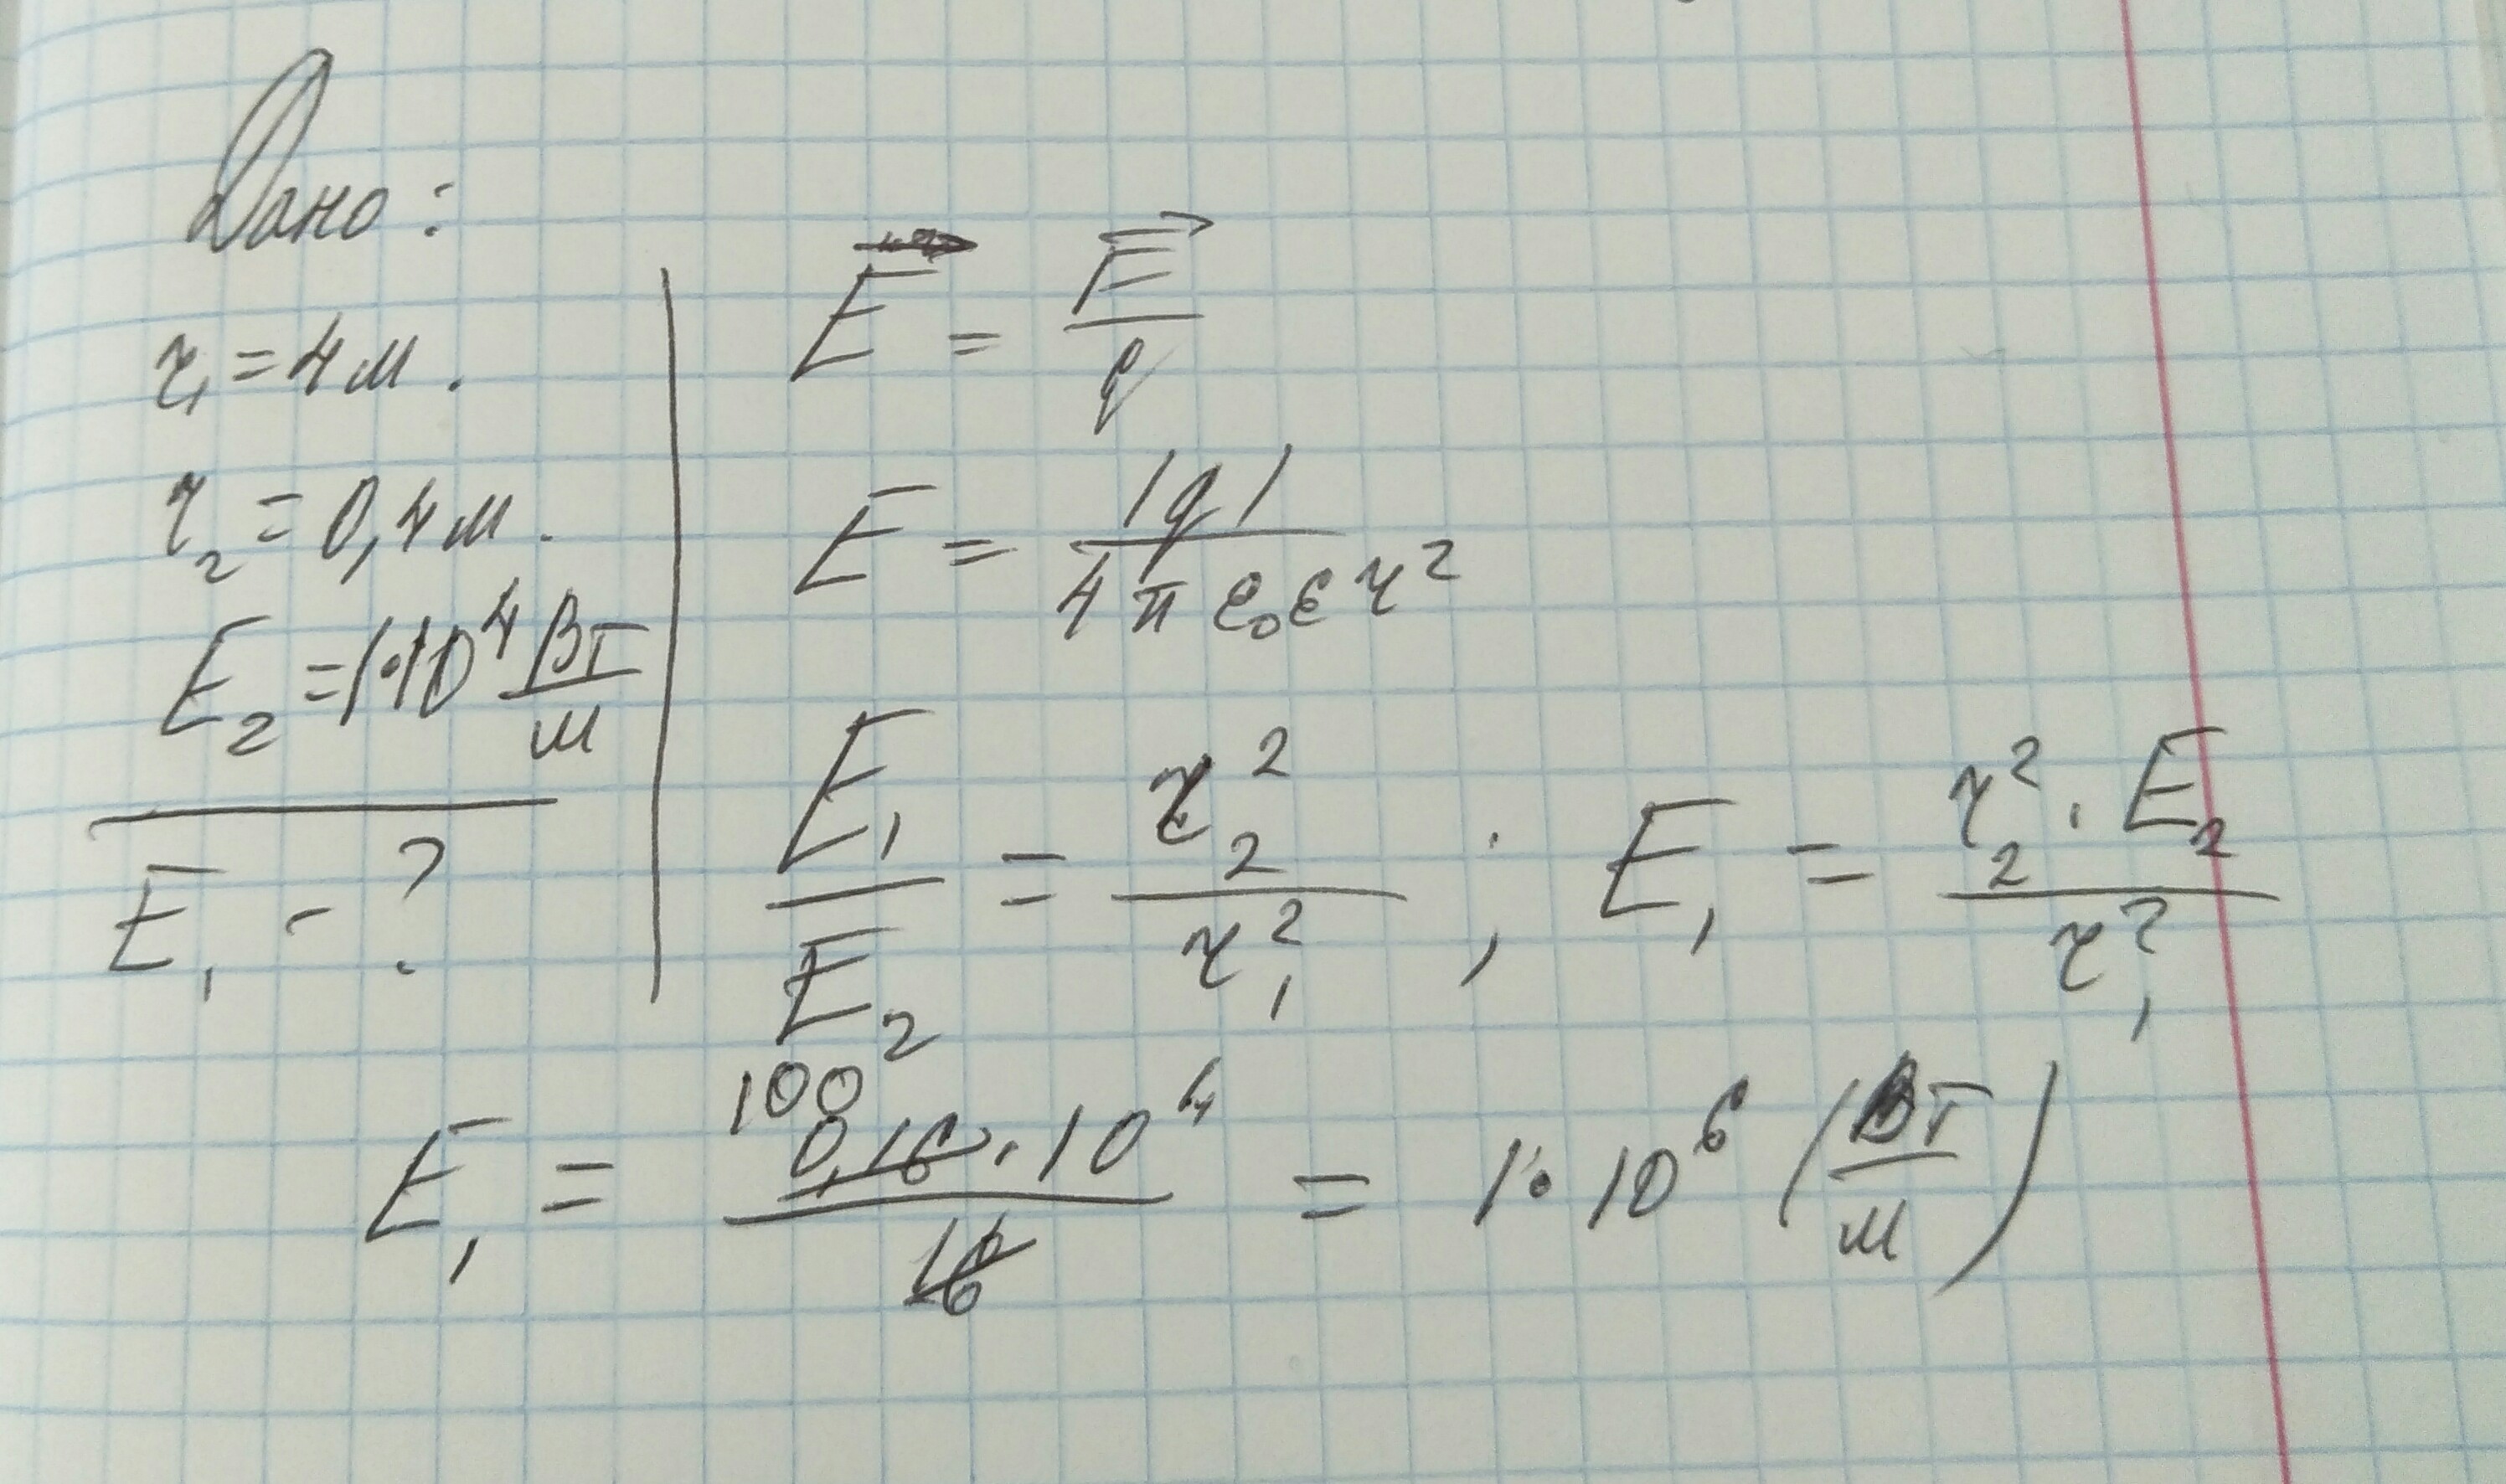 Дано:
r₁ = 4 м.
r₂ = 0,4 м.
E₂ = 1·10⁴ Вт/м
E₁ - ?
E⃗ = F⃗/q
E = |q|/4πε₀εr²
E₁/E₂ = r₂²/r₁² ; E₁ = r₂²·E₂/r₁²
100
E₁ = 0,16·10⁴/16 = 1·10⁶ (Вт/м)